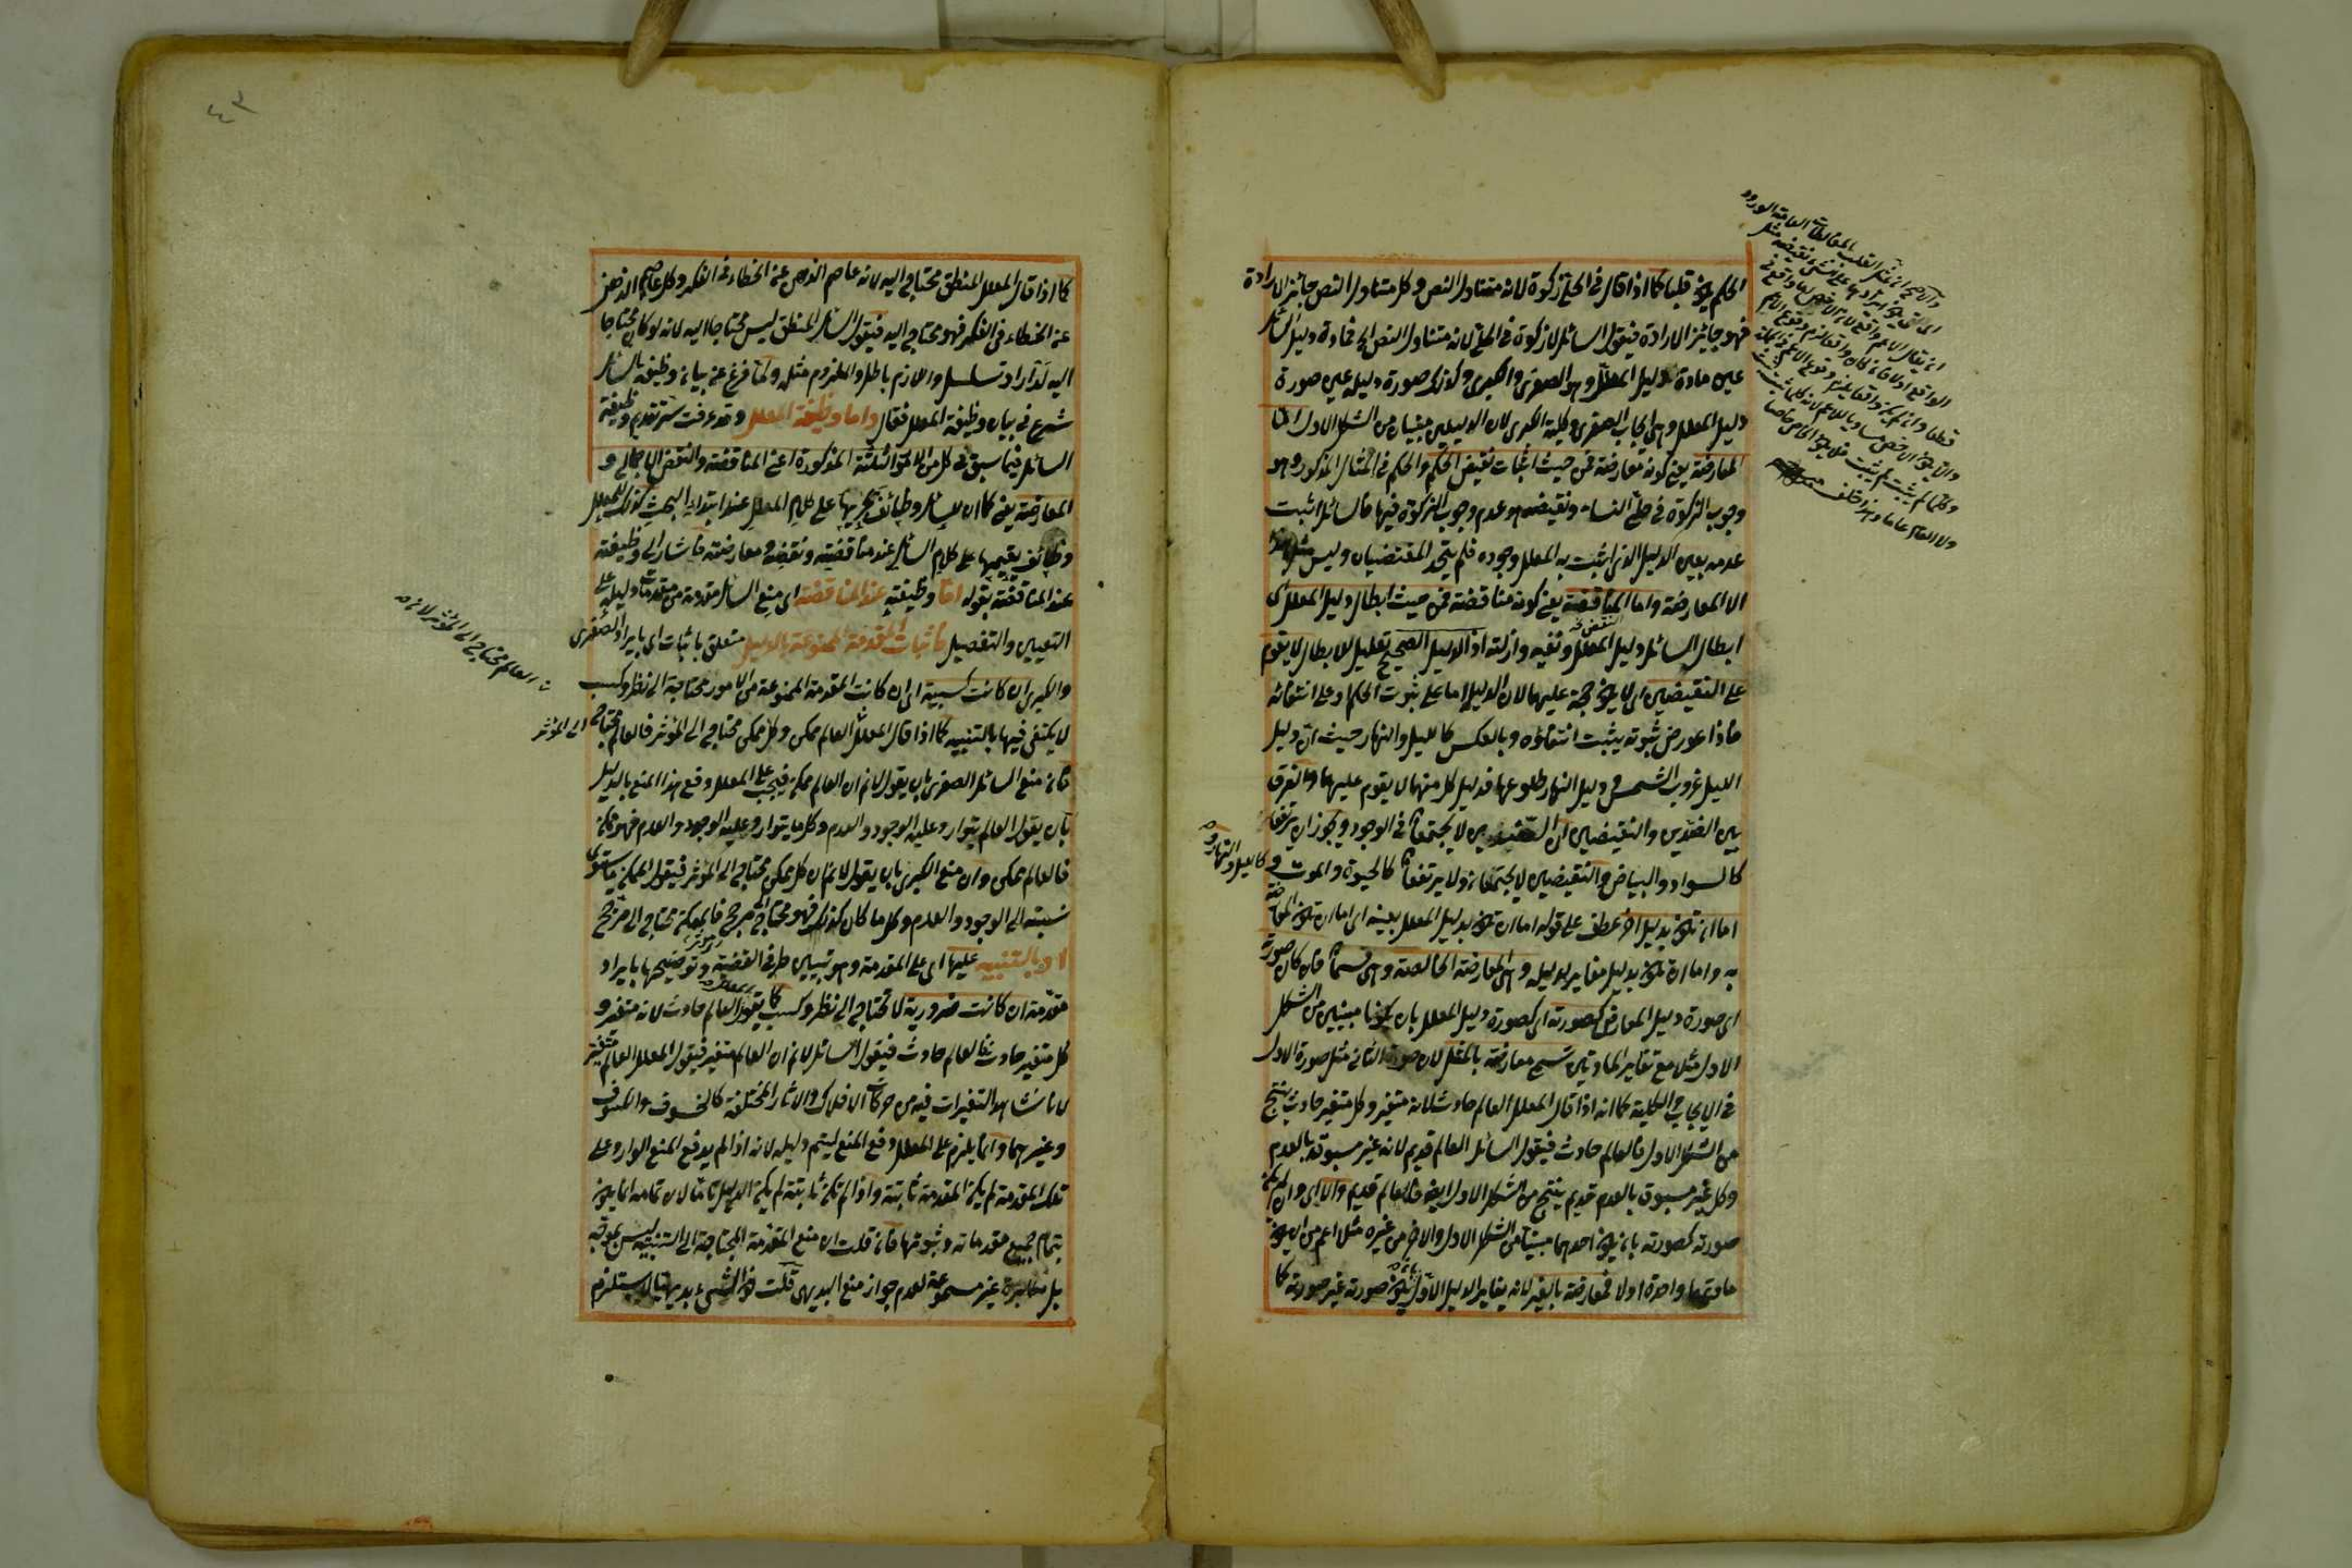 الحكم يكون قلبا كما اذا قال في الحلي زكوة لانه متناول النص وكل متناول النص جائز الارادة
فهو جائز الارادة فيقول السائل لا زكوة في الحلي لانه متناول النص الخ فمادة دليل السائل
عين مادة دليل المعلل وهو الصغرى والكبرى وكذلك صورة دليله عين صورة
دليل المعلل وهي ايجاب الصغرى وكلية الكبرى لان الدليلين مبنيان من الشكل الاول اما
المعارضة يعني كونه معارضة فمن حيث اثبات نقيض الحكم والحكم في المثال المذكور وهو
وجوب الزكوة في حلي النساء ونقيضه هو عدم وجوب الزكوة فيها فالسائل اثبت
عدمه بعين الدليل الذي اثبت به المعلل وجوده فلم يتحد المقتضيان وليس مثل هذا
الا المعارضة واما المناقضة يعني كونه مناقضة فمن حيث ابطال دليل المعلل اى
ابطال السائل دليل المعلل ونفيه وازالته اذ الدليل الصحيح تعليل للابطال لا يقوم
على النقيضين اى لا يكون حجة عليهما لان الدليل اما على ثبوت الحكم او على انتفائه
فاذا عورض ثبوته يثبت انتفاؤه وبالعكس كالليل والنهار حيث ان دليل
الليل غروب الشمس ودليل النهار طلوعها فدليل كل منهما لا يقوم عليهما والفرق
بين الضدين والنقيضين ان الضدين لا يجتمعان في الوجود ويجوز ان يرتفعا
كالسواد والبياض والنقيضين لا يجتمعان ولا يرتفعان كالحيوة والموت و
كالليل والنهار
اما ان تكون بدليل اخر عطف على قوله اما ان تكون بدليل المعلل بعينه اى اما ان تكون المعارضة
به واما ان تكون بدليل مغاير لدليله وهي المعارضة الخالصة وهي قسمان فان كان صورته
اى صورة دليل المعارض كصورته اى كصورة دليل المعلل بان يكونا مبنيين من الشكل
الاول مثلا مع تغاير المادتين تسمى معارضة بالمثل لان صورة الثاني مثل صورة الاول
في الايجاب والكلية كما انه اذا قال المعلل العالم حادث لانه متغير وكل متغير حادث ينتج
من الشكل الاول فالعالم حادث فيقول السائل العالم قديم لانه غير مسبوق بالعدم
وكل غير مسبوق بالعدم قديم ينتج من الشكل الاول ايضا فالعالم قديم والا اى وان لم يكن
صورته كصورته بان يكون احدهما مبنيا من الشكل الاول والاخر من غيره مثلا اعم من ان يكون
مادتهما واحدة اولا فمعارضة بالغير لانه يغاير الدليل الاول بكون صورته غير صورته كما
كما اذا قال المعلل المنطق محتاج اليه لانه عاصم الذهن عن الخطاء في الفكر وكل عاصم الذهن
عن الخطاء في الفكر فهو محتاج اليه فيقول السائل المنطق ليس محتاجا اليه لانه لو كان محتاجا
اليه لدار او تسلسل واللازم باطل والملزوم مثله ولما فرغ عن بيان وظيفة السائل
شرع في بيان وظيفة المعلل فقال واما وظيفة المعلل وقد عرفت سر تقديم وظيفة
السائل فيما سبق في كل من الامور الثلثة المذكورة اعني المناقضة والنقض الاجمالي و
المعارضة يعني كما ان للسائل وظائف يجريها على كلام المعلل عند ابتداء البحث كذلك للمعلل
وظائف يقيمها على كلام السائل عند مناقضته ونقضه ومعارضته فاشار الى وظيفته
عند المناقضة بقوله اما وظيفته عند المناقضة اى منع السائل مقدمة من مقدمات دليله على
التعيين والتفصيل فاثبات المقدمة الممنوعة بالدليل متعلق باثبات اى بايراد الصغرى
والكبرى ان كانت كسبية اى ان كانت المقدمة الممنوعة من الامور محتاجة الى نظر وكسب
لا يكتفى فيها بالتنبيه كما اذا قال المعلل العالم ممكن وكل ممكن محتاج الى المؤثر فالعالم محتاج
الى المؤثر
فان منع السائل الصغرى بان يقول لا نم ان العالم ممكن فيجب على المعلل دفع هذا المنع بالدليل
بان يقول العالم يتوارد عليه الوجود والعدم وكل ما يتوارد عليه الوجود والعدم فهو ممكن
فالعالم ممكن وان منع الكبرى بان يقول لا نم ان كل ممكن محتاج الى المؤثر فيقول الممكن يتساوى
نسبته الى الوجود والعدم وكل ما كان كذلك فهو محتاج الى مرجح فالممكن محتاج الى مرجح
او بالتنبيه عليها اى على المقدمة وهو تبيين طرفي القضية وتوضيحها بايراد
مقدمة ان كانت ضرورية لا تحتاج الى نظر وكسب كما يقول العالم حادث لانه متغير و
كل متغير حادث فالعالم حادث فيقول السائل لا نم ان العالم متغير فيقول المعلل العالم متغير
لانا نشاهد التغيرات فيه من حركات الافلاك والاثار المختلفة كالخسوف والكسوف
وغيرهما وانما يلزم على المعلل دفع المنع ليتم دليله لانه اذا لم يدفع المنع الوارد على
تلك المقدمة لم يكن المقدمة ثابتة واذا لم تكن ثابتة لم يكن الدليل تاما لان تمامه انما يكون
بتمام جميع مقدماته وثبوتها فان قلت ان منع المقدمة المحتاجة الى التنبيه ليس بموجه
بل مكابرة غير مسموعة لعدم جواز منع البديهي قلت كون الشيء بديهيا لا يستلزم